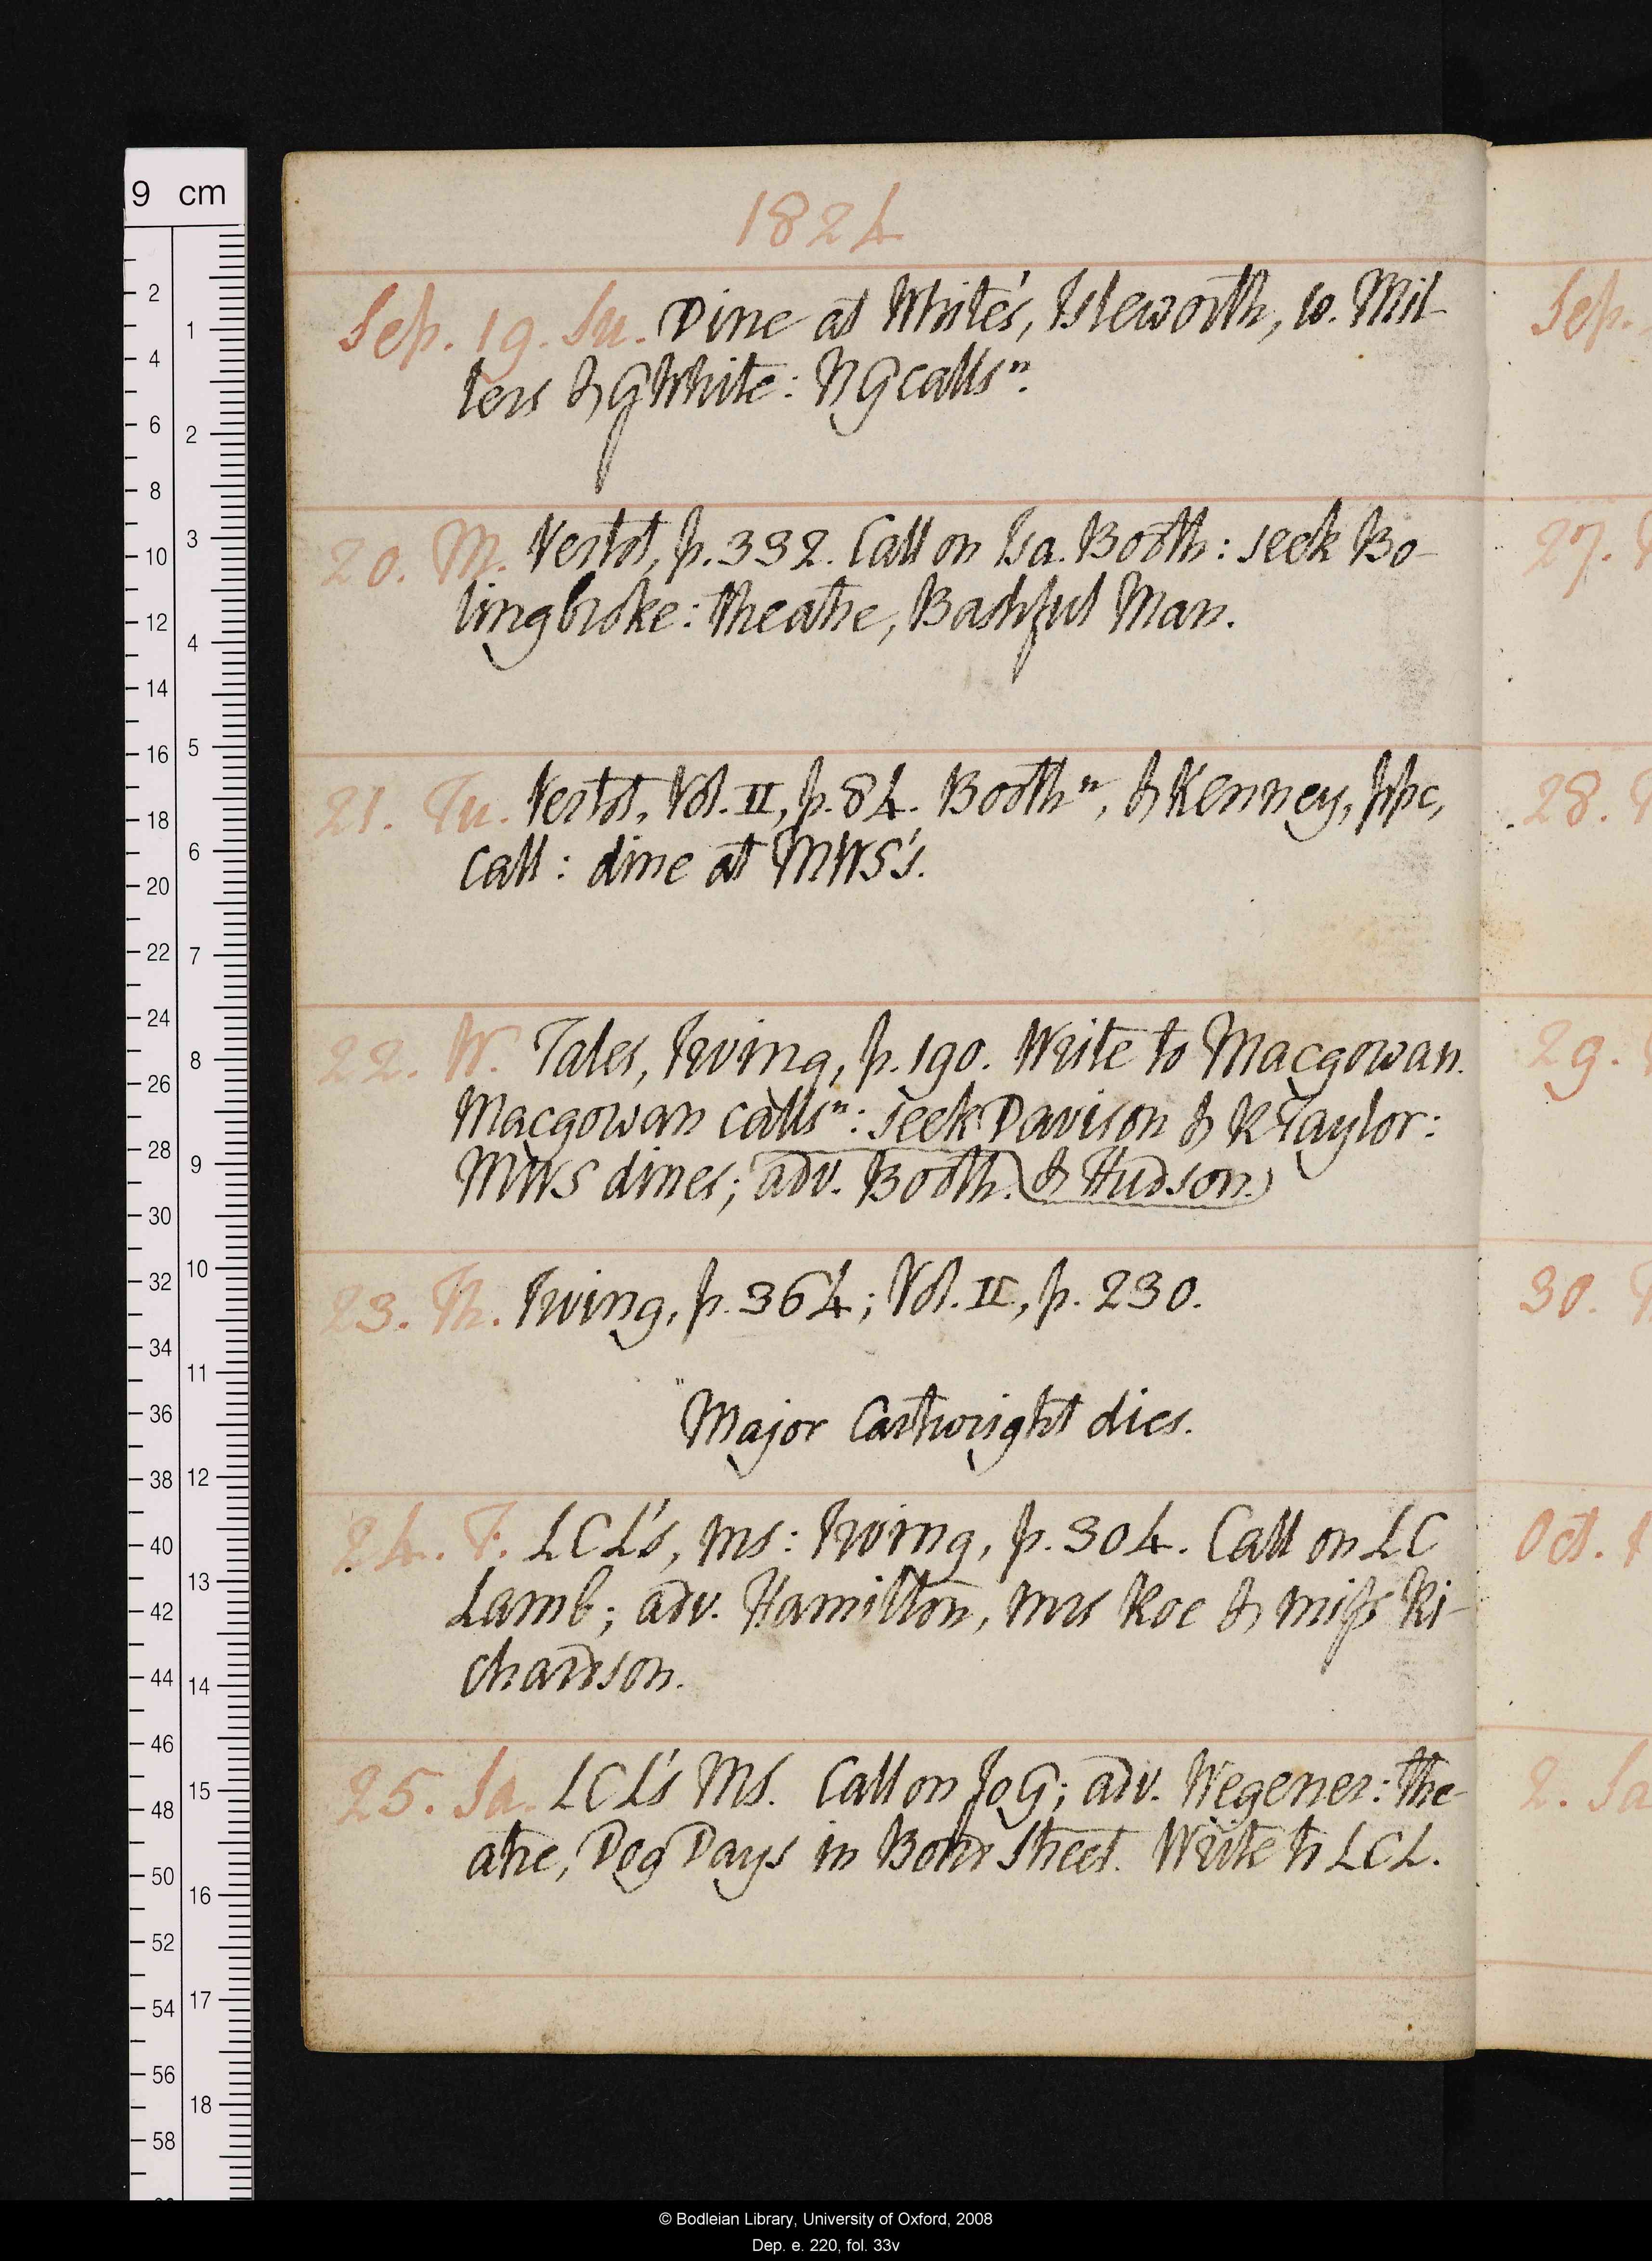 1824
Sep. 19. Su. Dine at White's, Isleworth, w. Mil-
lers & G White: H G calls n.
20. M. Vertot, p. 332. Call on Isa. Booth: seek Bo-
lingbroke: theatre, Bashful Man.
21. Tu. Vertot, Vol. II, p. 84. Booth n, & Kenney, ppc,
call: dine at MWS's.
22. W. Tales, Irving, p. 190. Write to Macgowan.
Macgowan calls n: seek Davison & R Taylor:
MWS dines; adv. Booth. (& Hudson.)
23. Th. Irving, p. 364; Vol. II, p. 230.
Major Cartwright dies.
24. F. LCL's, ms: Irving, p. 304. Call on LC
Lamb; adv. Hamilton, mrs Roe & miss Ri-
chardson.
25. Sa. LCL's MS. Call on JoG; adv. Wegener: the-
atre, Dog Days in Bond Street. Write to LCL.
Sep.
27.
28.
29.
30.
Oct.
2. Sa
9 cm
2
4
6
8
10
12
14
16
18
20
22
24
26
28
30
32
34
36
38
40
42
44
46
48
50
52
54
56
58
1
2
3
4
5
6
7
8
9
10
11
12
13
14
15
16
17
18
© Bodleian Library, University of Oxford, 2008
Dep. e. 220, fol. 33v